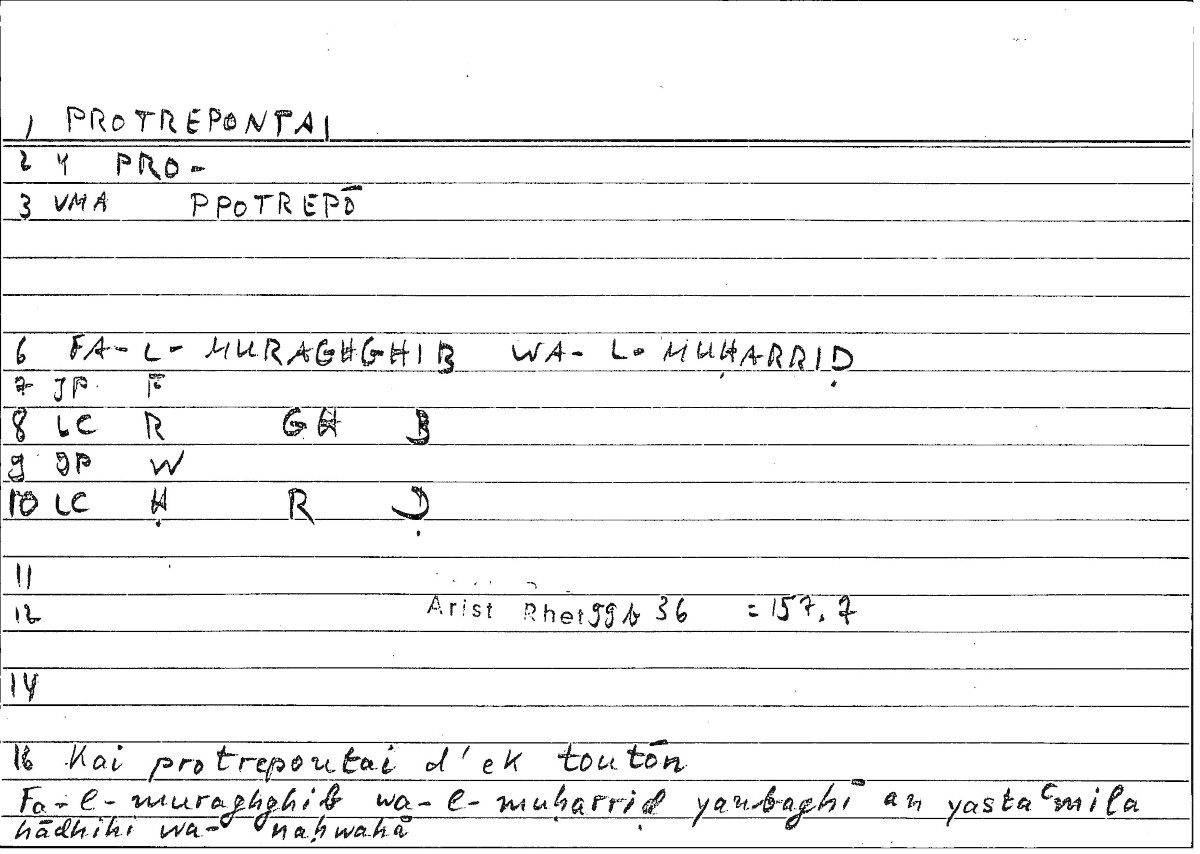 1 PROTREPONTAI
2 Y PRO-
3 VMA PPOTREPŌ
6 FA-L-MURAGHGHIB WA-L-MUḤARRIḌ
7 JP F
8 LC R GH B
9 JP W
10 LC Ḥ R Ḍ
11
12 Arist Rhet 99b 36 = 157,7
14
16 Kai protrepontai d'ek toutōn
Fa-l-muraghghib wa-l-muḥarriḍ yanbaghī an yastaʿmila
hādhihi wa- naḥwahā